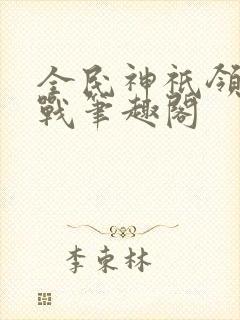 全民神祇领
戰筆趣閣
李東林